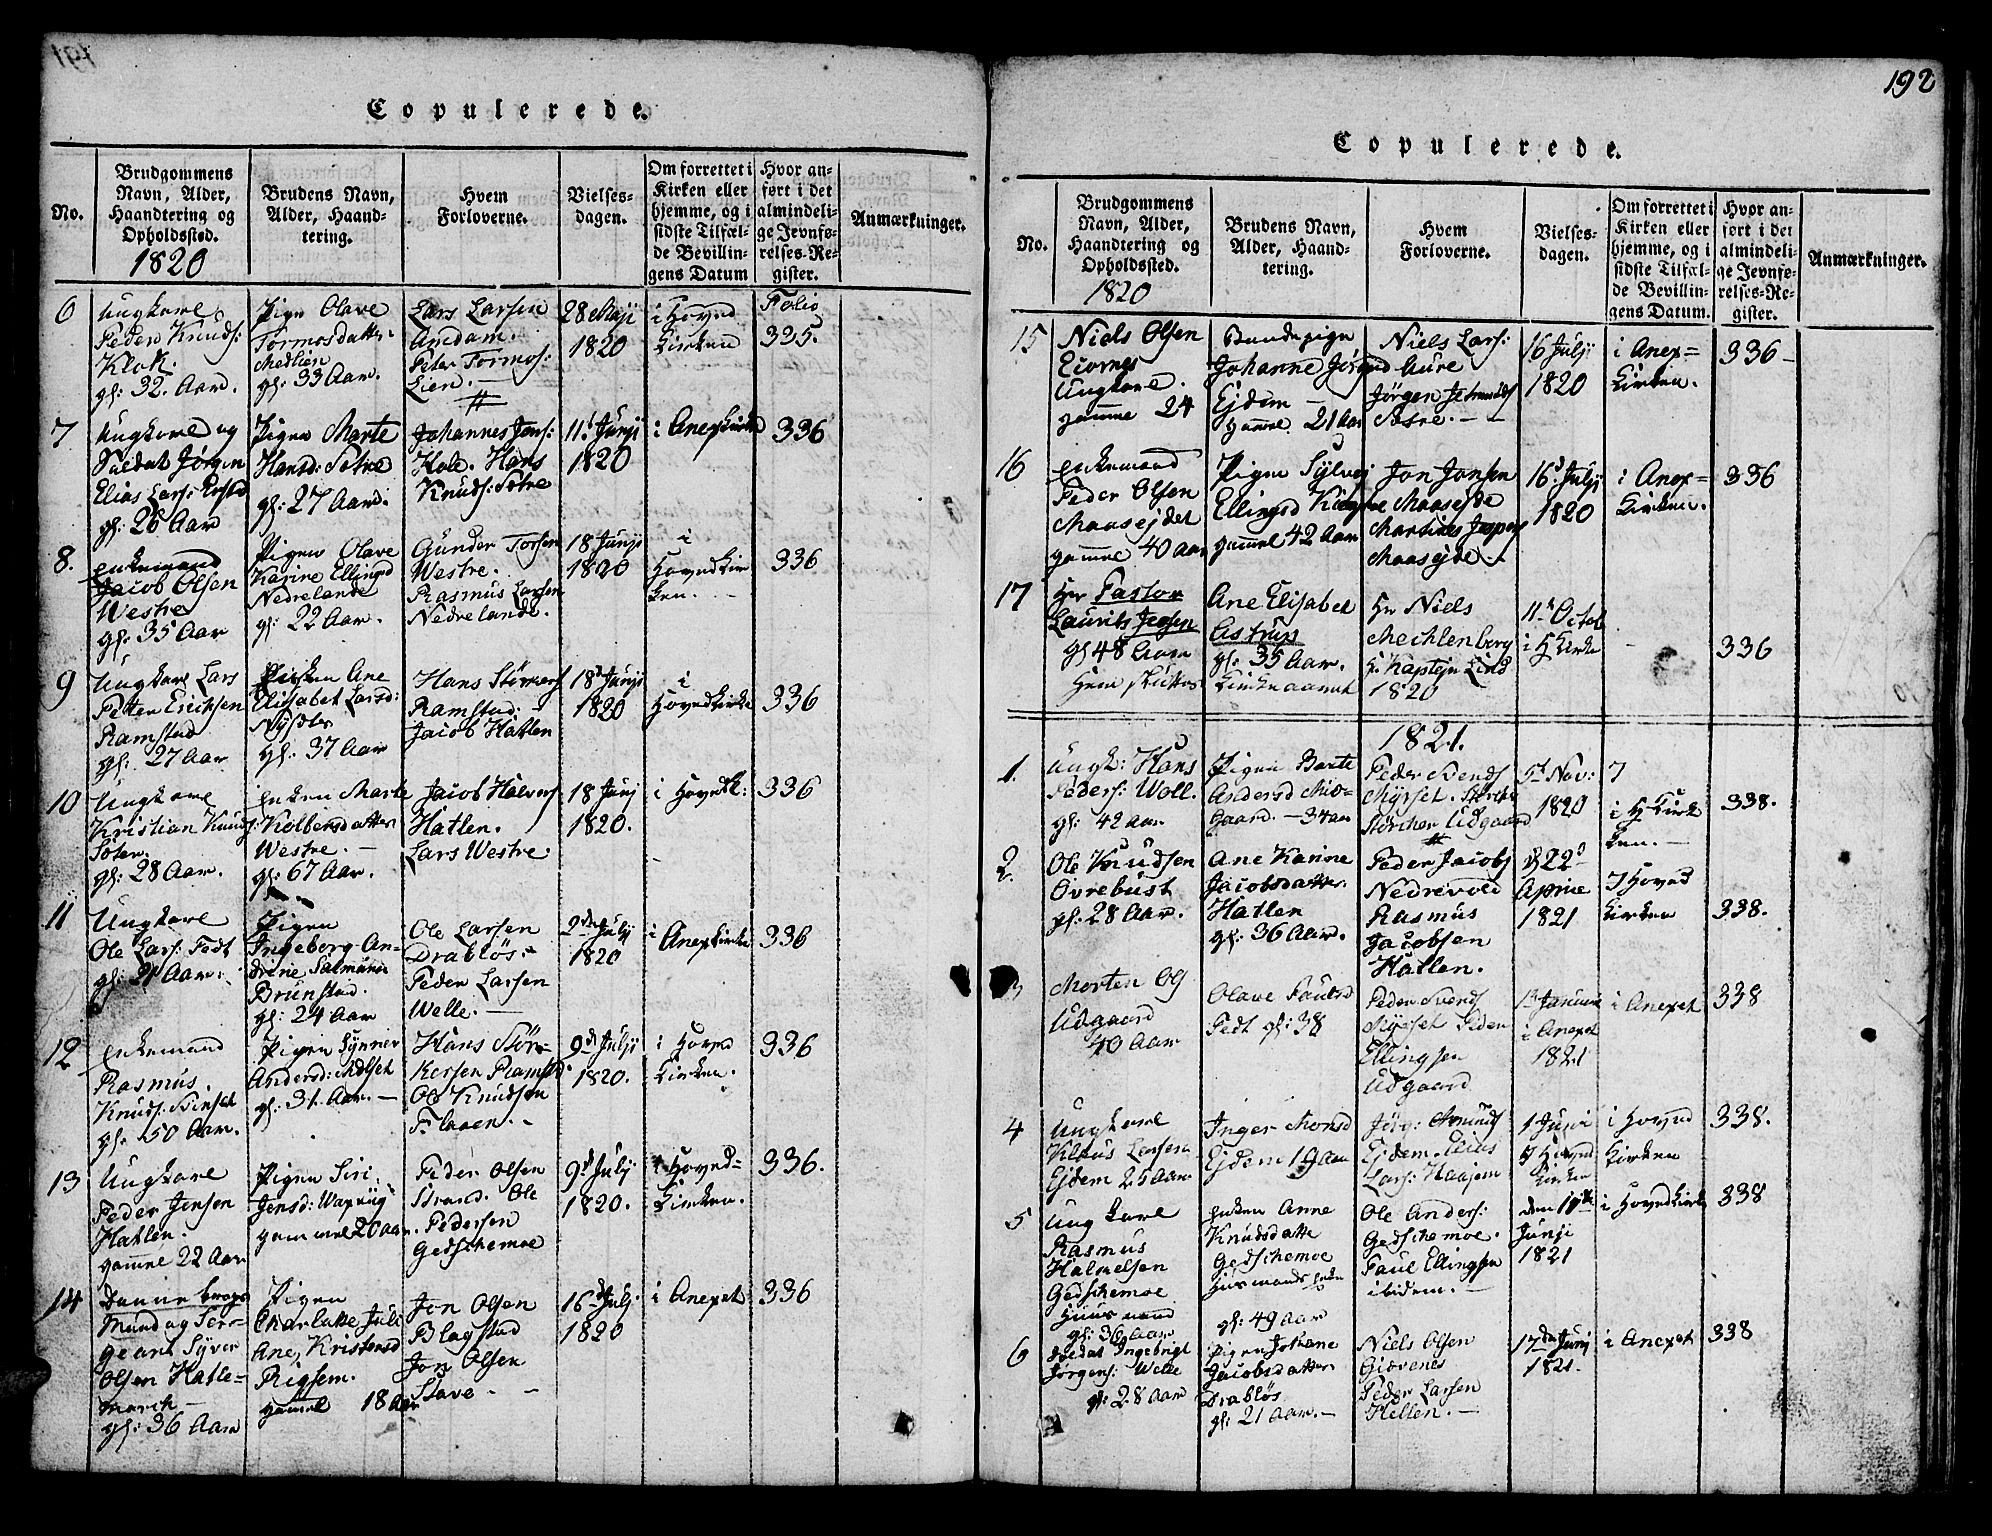 191
Copulerede.
No.
Brudgommens Navn, Alder, Haandtering og Opholdssted.
1820
Brudens Navn, Alder, Haandtering.
Hvem Forloverne.
Vielsesdagen.
Om forrettet i Kirken eller hjemme, og i sidste Tilfælde Bevillingens Datum
Hvor anført i det almindelige Jevnførelses-Register.
Anmærkninger.
6
Ungkarl
Peder Knuds:
Klok.
gl: 32. Aar.
Pige Olave
Tormosdatter
Medlien
gl: 33 Aar.
Lars Larsen
Amdam.
Peter Tormos:
Lien. —
28 Maji
1820
i Hoved
Kirken
Folio
335.
7
Ungkarl og
Soldat Jørgen
Elias Lars:
gl: 26 Aar
Pigen Marte
Hansd: Sætre
gl: 27 Aar.
Johannes Jons:
Hole. Hans
Knuds: Sætre
11. Junji
1820
i Anexkirke
336
8.
Enkemand
Jacob Olsen
Westre
gl: 35 Aar
Pigen Olave
Karine Ellingsd
Nedrelande
gl: 22 Aar.
Gunder Torsen
Westre.
Rasmus Larsen
Nedrelande.
18 Junji
1820
i
Hovedkir
ken. —
336
9
Ungkarl Lars
Petter Erichsen
Ramstad
gl: 27 Aar
Ane
Elisabet Larsd:
gl: 37 Aar
Hans
Ramstad.
Jacob Hatlen
18d Junji
1820
i
Hovedkirke
336
10
Ungkarl
Kristian Knuds:
gl: 28 Aar.
Enken Marte
Kolbensdatter
Westre. —
gl: 67 Aar.
Jacob Halvors
Hatlen.
Lars Westre.
18 Junj
1820.
i Hovedk:
336
11
Ungkarl
Ole Lars: Fedt
gl: 21 Aar.
Pigen
Ingeborg An-
drine
Brunstad.
gl: 24 Aar
Ole Larsen
Drabløs.
Peder Larsen
Welle. —
2den Julj
1820
i Anexkirke
336
12
Enkemand
Rasmus
Knuds:
gl: 50 Aar.
Pigen Synner
Andersd:
gl: 31. Aar. —
Hans Stør-
kersen Ramstad
Ole Knudsen
9d Julji
1820.
i Hoved
Kirken.
336
13
Ungkarl
Peder Jensen
Hatlen.
gammel 22 Aar
Pigen Siri
Jensd:
gammel 20 aar.
Peder Olsen
Strand. Ole
Pedersen
Gedschemoe
9d Julj
1820.
i Hoved-
Kirken.
336.
14
Dannebrogs
Mand og Ser-
geant Syver
Olsen Hatle-
march —
gl: 36 Aar
Pigen
Charlotte Juli
Ane, Kristensd
gammel 18 Aar
Jon Olsen
Blagstad
Jon Olsen
Slave. - -
16d Julj
1820
i Anexet
336
192
Copulerede.
No.
Brudgommens Navn, Alder, Haandtering og Opholdssted.
1820
Brudens Navn, Alder, Haandtering.
Hvem Forloverne.
Vielsesdagen.
Om forrettet i Kirken eller hjemme, og i sidste Tilfælde Bevillingens Datum.
Hvor anført i det almindelige Jevnførelses-Register.
Anmærkninger.
15
Niels Olsen
Ungkarl.
gamme 24
Bondepige
Johanne Jørgnd
Ejdem —
gammel 21 aar
Niels Lars:
Aure
Jørgen
Sætre. —
16 Julji
1820
i Anex=
Kirken.
336 —
16
Enkemand
Peder Olsen
Maasejdet
gammel 40 aar
Pigen Sylvej
Ellingsd
gammel 42 Aar
Jon Jonsen
Maasejde
Maasejde.
16d Julji
1820
i Anex=
Kirken.
336
17
Hr Pastor
Laurits
gl 48 Aar
Ane Elisabet
Astrup
gl: 35 Aar.
Hr Niels
Mechlenberg
Hr Kaptejn Lind
1820
11te Octob
i H Kirke
336
1821.
1.
Ungk: Hans
Peders: Woll.
gl: 42 aar
Pigen Barte
Andersd Mio-
Gaard. — 34 aar
Peder Svends
Myrset.
Størcher Udgaard
5d Nov:
1820
i H Kirk
ken. —
338.
2.
Ole Knudsen
Øvrebust
gl: 28 Aar.
Ane Karine
Jacobsdatter
Hatlen
gl: 36 Aar.
Peder Jacobs
Nedrevold
Rasmus
Jacobsen
Hatlen.
d 22d
Aprill
1821
I Hoved
Kirken
338.
3
Morten Ols
Udgaard
40 Aar
Olave Paulsd
Fedt gl: 38
Peder Svends
Myrset Peder
Ellingsen
Udgaard
1d Januari
i Anexet
1821
i Anexet
338
4
Ungkarl
Klaus Larsen
Ejdem 25 Aar
Inger Monsd
Ejdem 19 aar
Jørg: Amunds
Ejdem. Elias
Lars: Haajem
1 Junji
I Hoved
Kirken
i Hoved
Kirken
338.
5
Ungkarl
Rasmus
Gedschemoe
Huusmand
gl: 36 Aar
Enken Anne
Knudsdatte
Gedschemoe
Huusmands enke
gl: 49 aar
Ole Anders:
Gedschemoe.
Paul Ellingsen
ibidem. —
den 10de
Junji
1821
i Hovedkirke
338
6
Soldat Ingebrigt
Jørgens: Welle
gl: 28 Aar
Pigen Johane
Jacobsdatter
Drabløs
gl: 21 Aar. —
Niels Olsen
Giævenes
Peder Larsen
Hellen. —
17de Junj
1821.
i Anexet
338